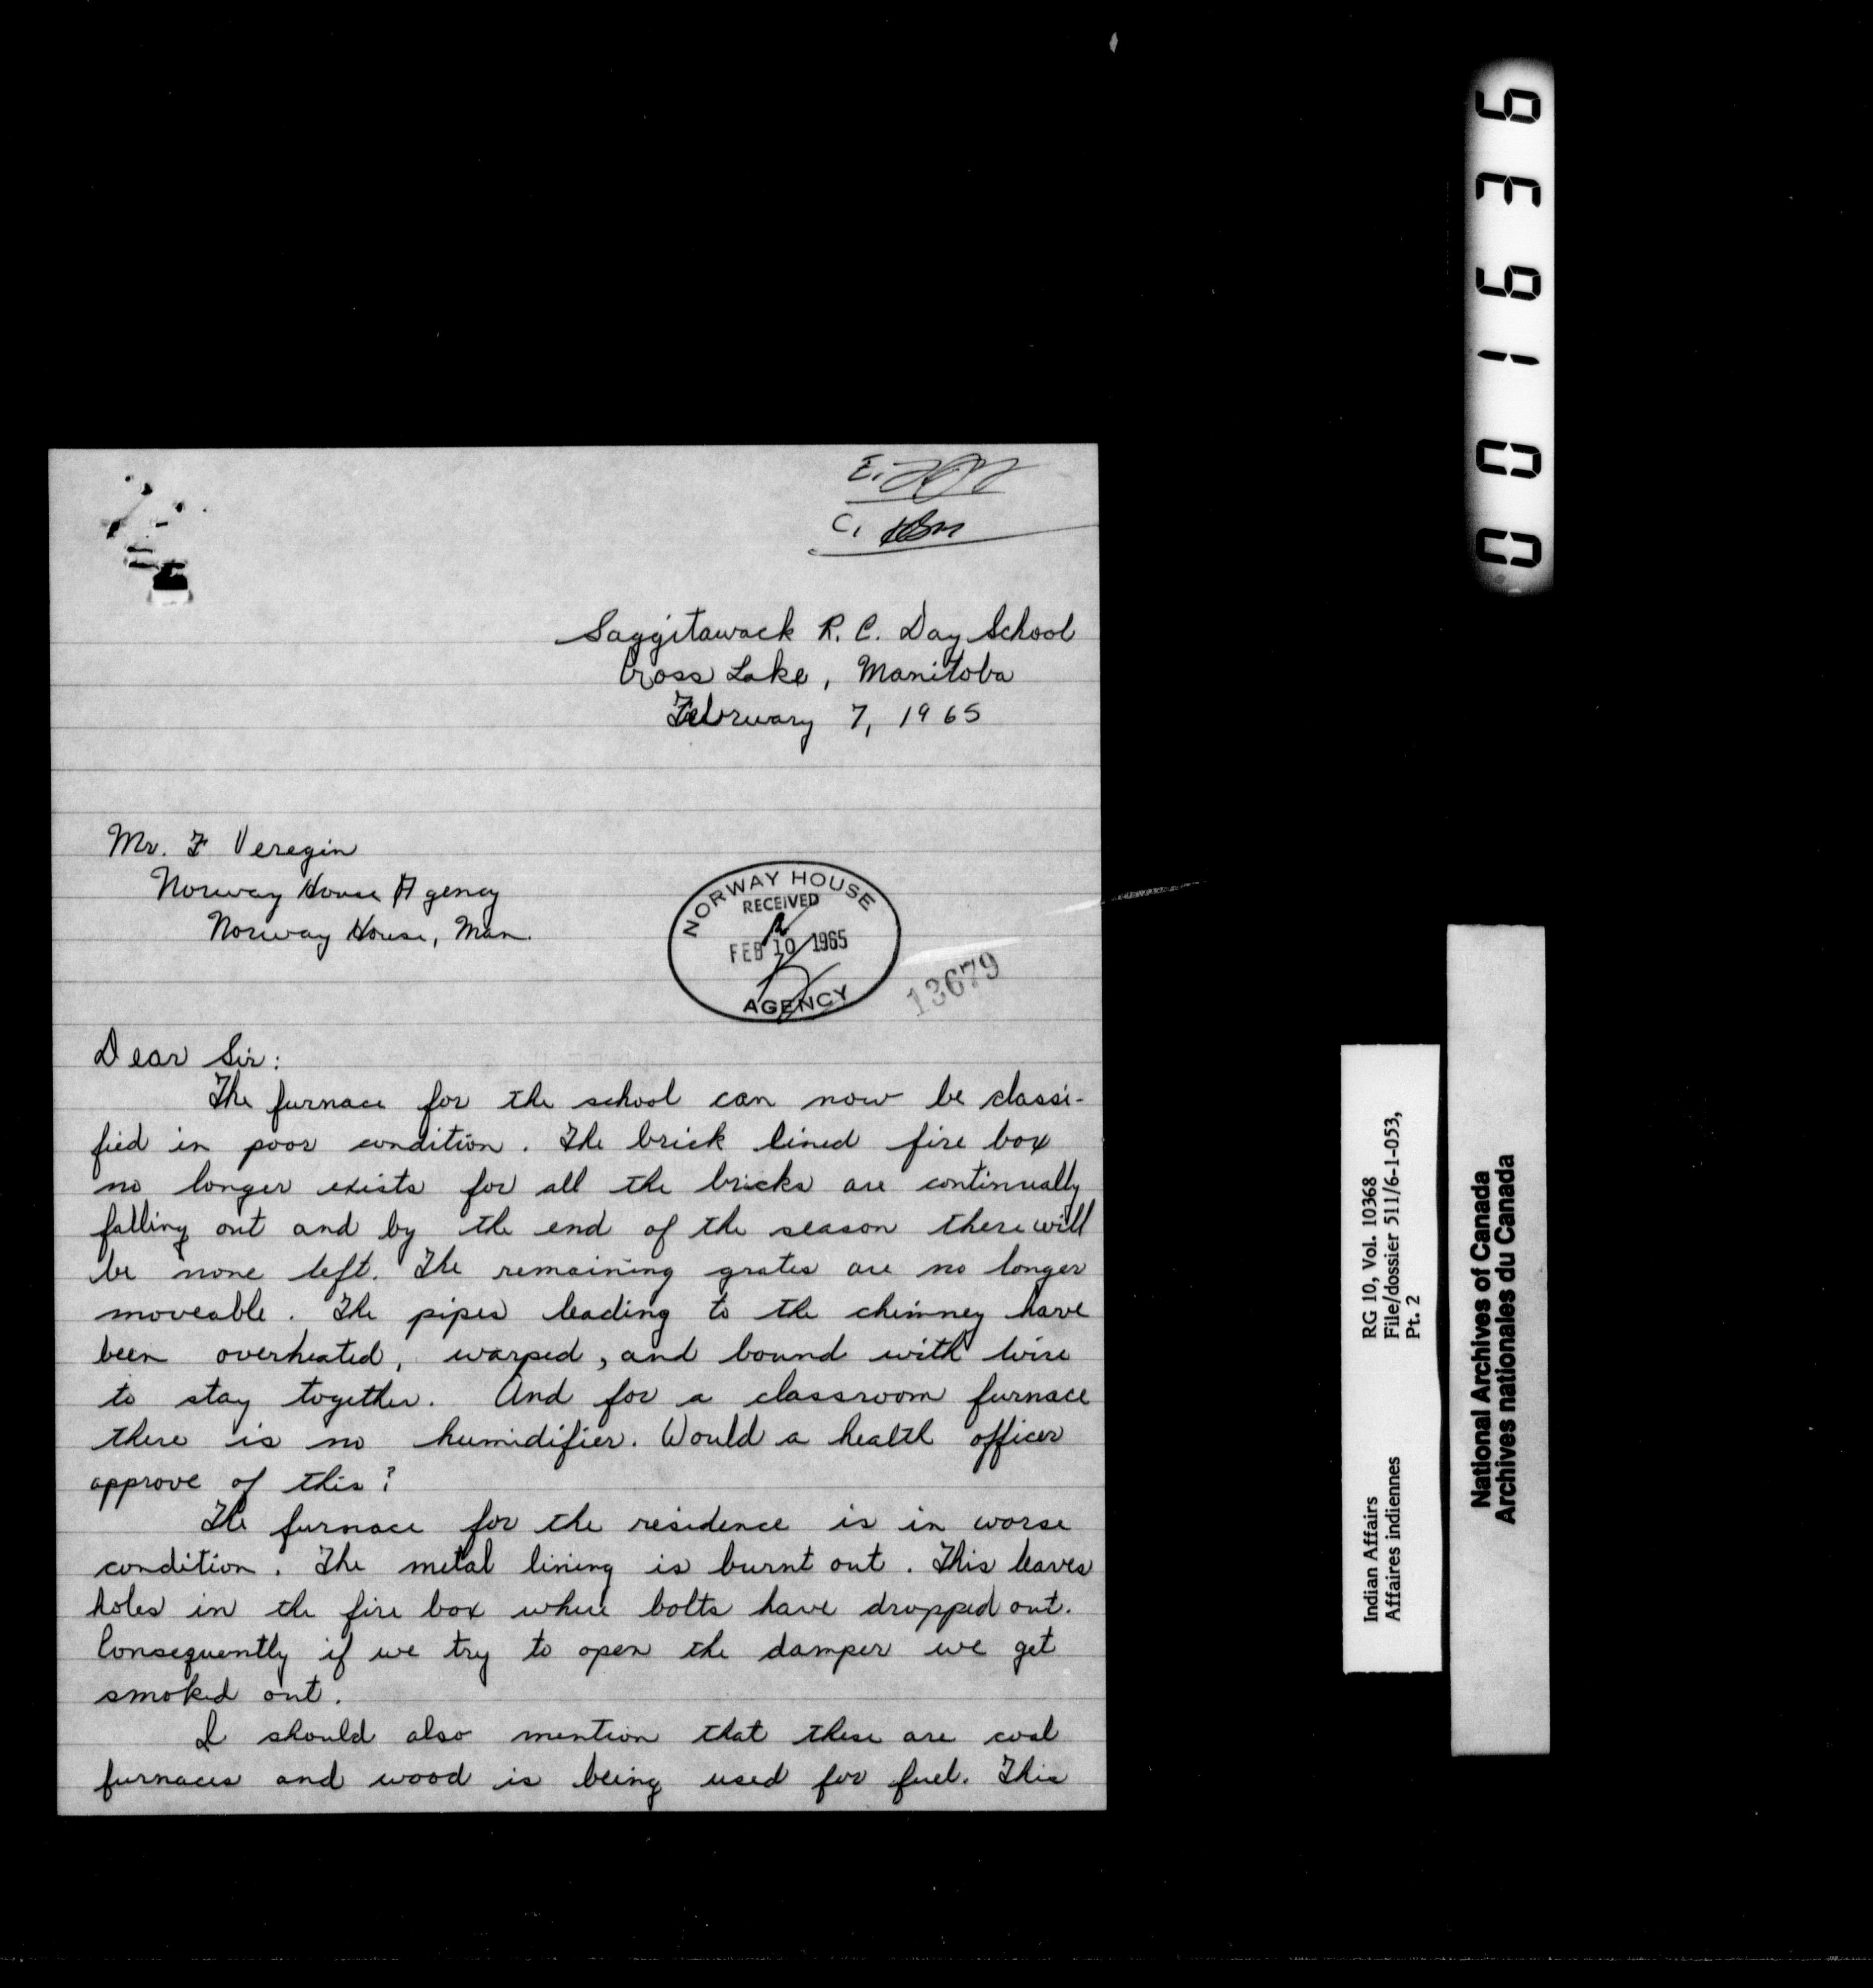 E.
C.
Saggitawack R. C. Day School
Cross Lake, Manitoba
February 7, 1965
Mr. F Veregin
Norway House Agency
Norway House, Man.
NORWAY HOUSE
RECEIVED
FEB 10 1965
AGENCY
13679
Dear Sir:
The furnace for the school can now be classi-
fied in poor condition. The brick lined fire box
no longer exists for all the bricks are continually
falling out and by the end of the season there will
be none left. The remaining grates are no longer
moveable. The pipes leading to the chimney have
been overheated, warped, and bound with wire
to stay together. And for a classroom furnace
there is no humidifier. Would a health officer
approve of this?
The furnace for the residence is in worse
condition. The metal lining is burnt out. This leaves
holes in the fire box where bolts have dropped out.
Consequently if we try to open the damper we get
smoked out.
I should also mention that these are coal
furnaces and wood is being used for fuel. This
001636
RG 10, Vol. 10368
File/dossier 511/6-1-053,
Pt. 2
Indian Affairs
Affaires indiennes
National Archives of Canada
Archives nationales du Canada